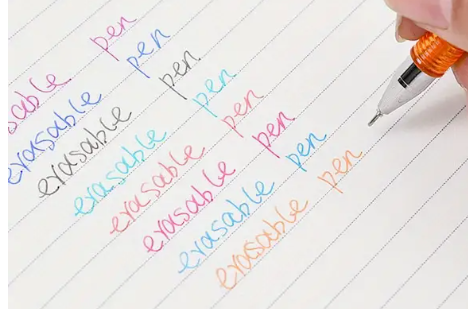 sable pen
erasable pen
erasable pen
erasable pen
erasable pen
erasable pen
erasable pen
erasable pen